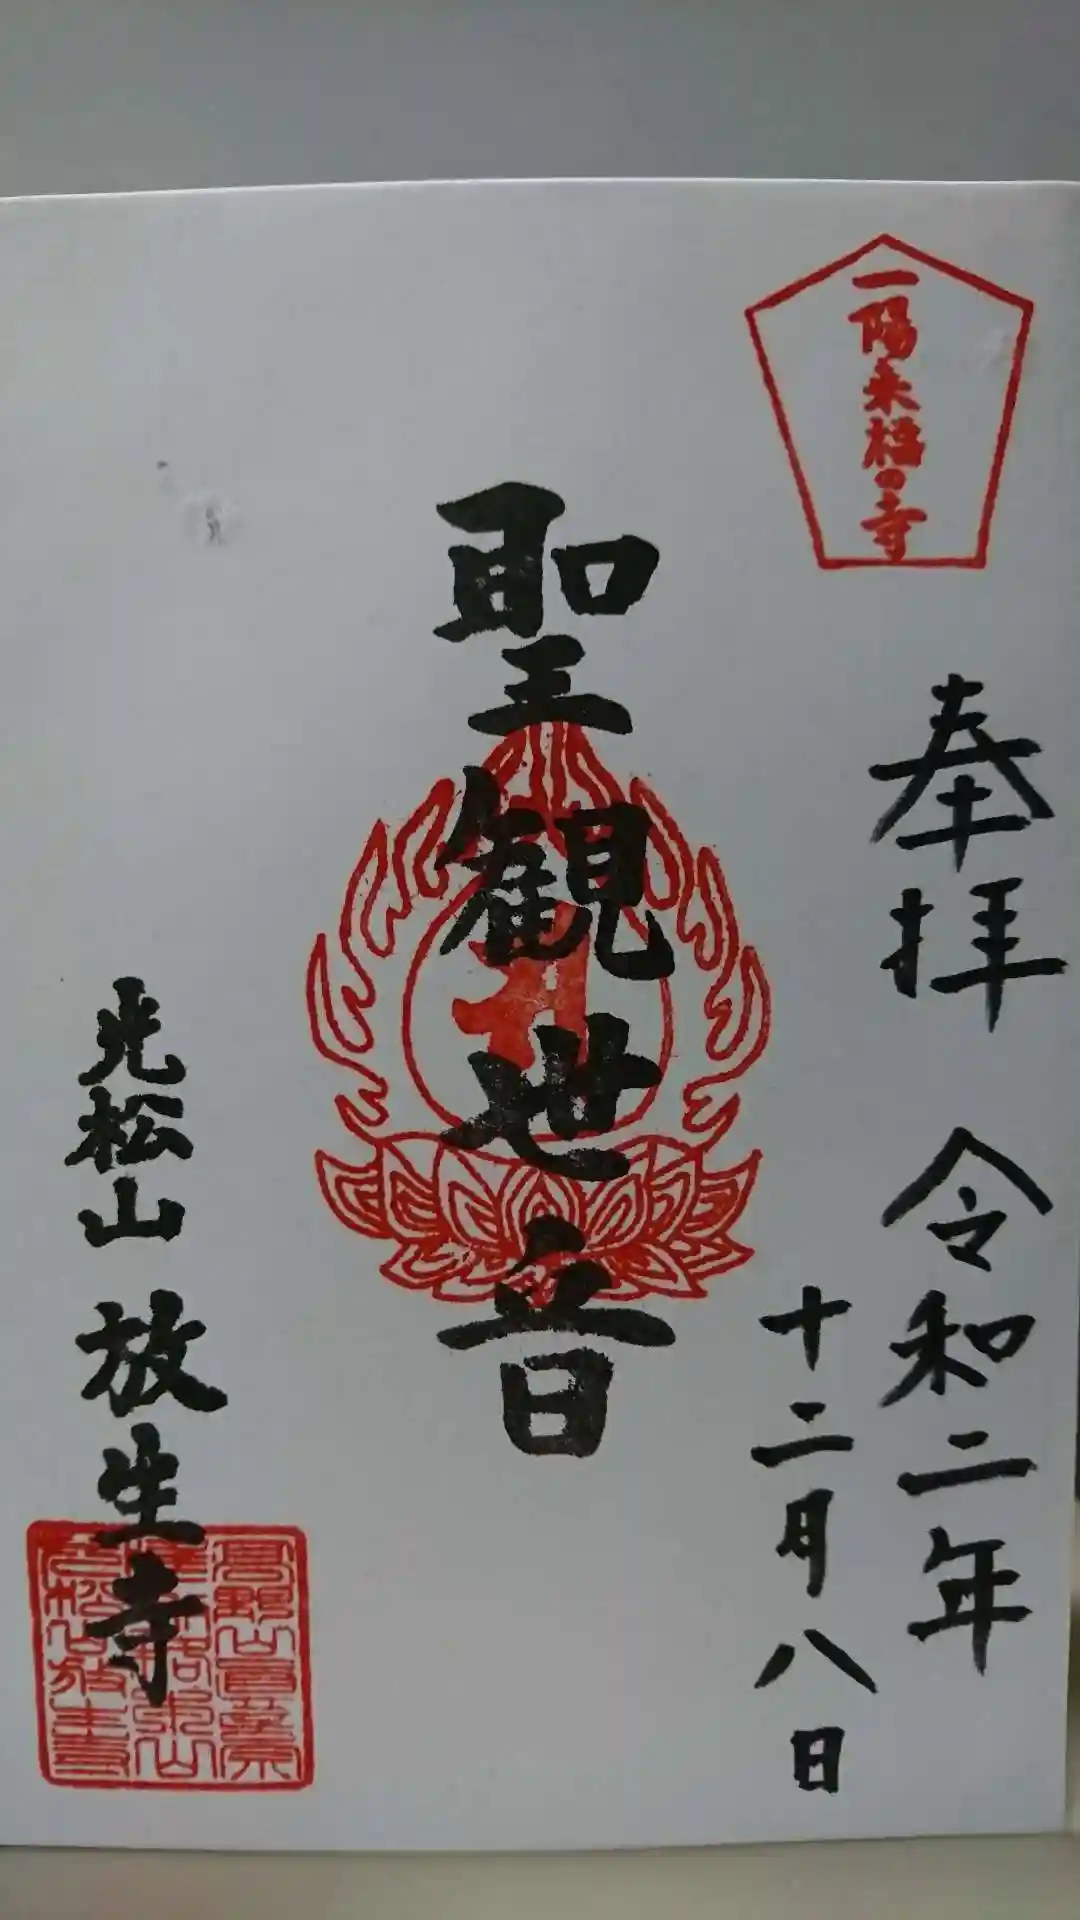 一陽来福の寺
奉拝 令和二年
十二月八日
聖観世音
光松山 放生寺